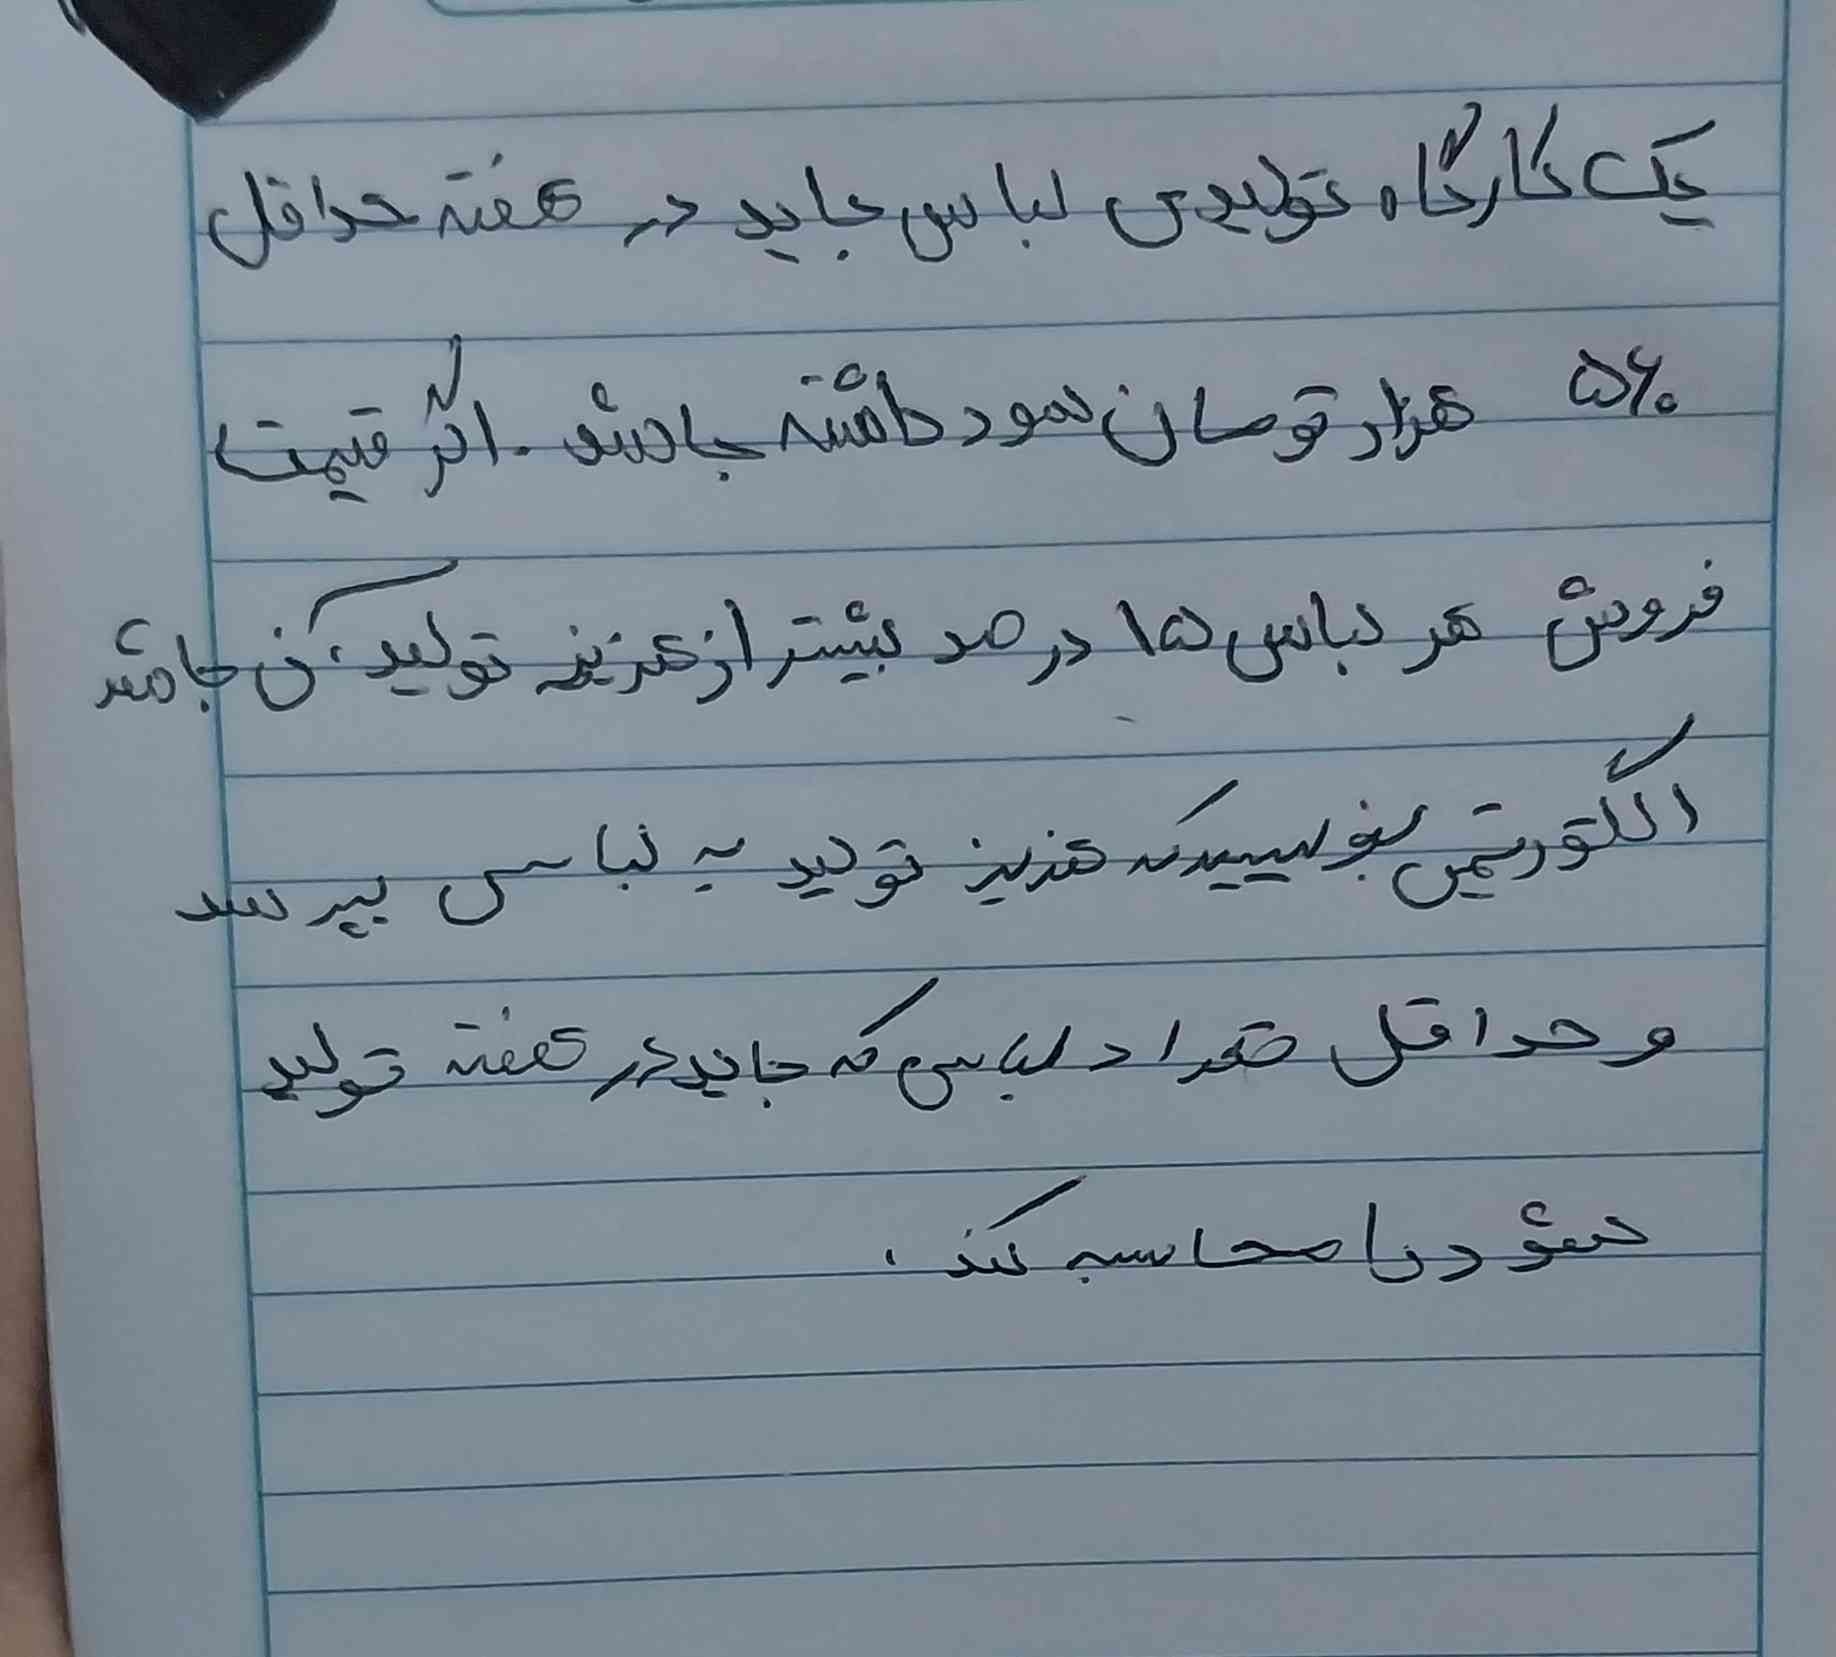 یک کارگاه تولیدی لباس باید در هفته حداقل
۵۶۰ هزار تومان سود داشته باشد. اگر قیمت
فروش هر لباس ۱۵ درصد بیشتر از هزینه تولید آن باشد
الگوریتمی بنویسید که هزینه تولید یه لباس بپرسد
و حداقل تعداد لباسی که باید در هفته تولید
شود را محاسبه کند.